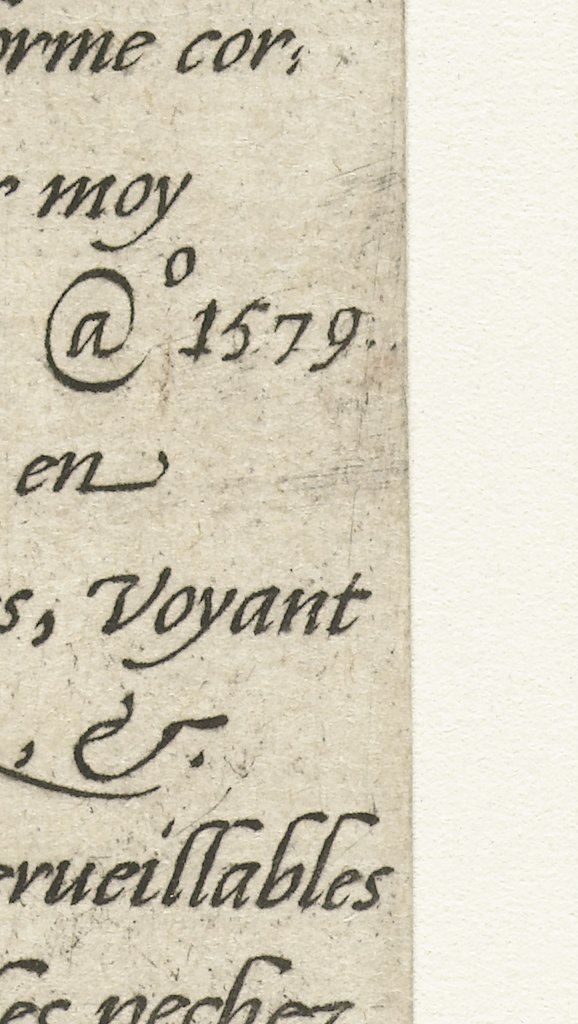 orme cor,
r moy
@º 1579.
en
s, Voyant
, &.
erueillables
les pechez